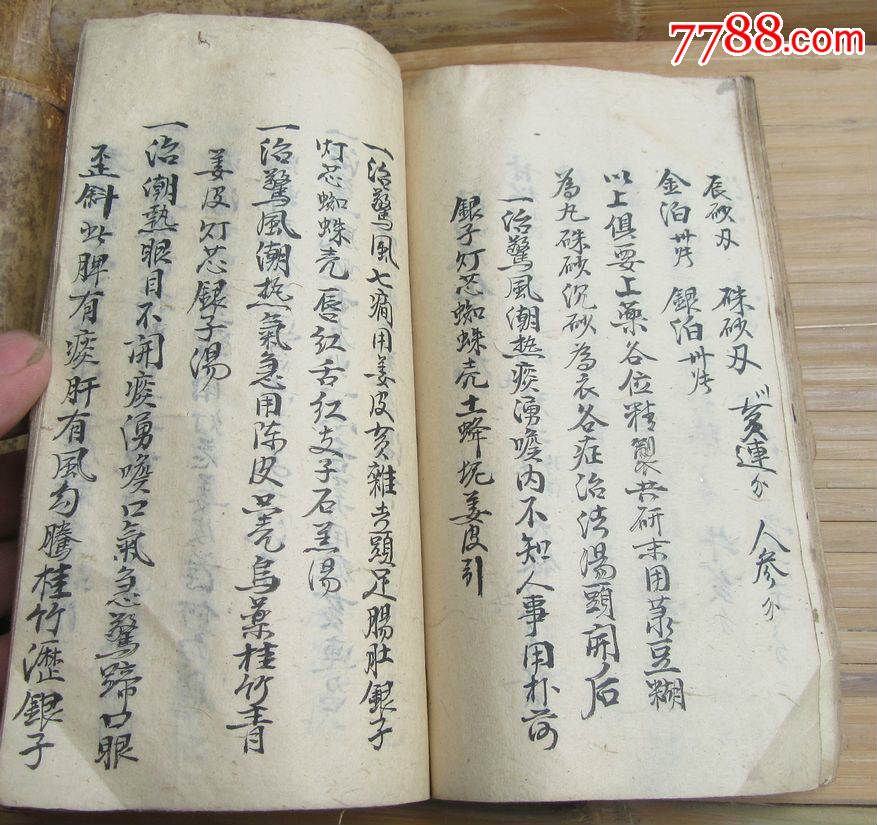 7788.com
辰砂刄 硃砂刄 黄連分 人參分
金泊卅张 銀泊卅张
以上俱要上藥各位精製共研末用菉豆糊
為丸硃砂沉砂為衣各症治法湯頭開后
一治驚風潮热痰湧喉内不知人事用朴荷
銀子灯芯蜘蛛壳土蜂坭姜皮引
一治驚風七癎用姜皮黄雞去頭足腸肚銀子
灯芯蜘蛛壳唇红舌红支子石羔湯
一治驚風潮热氣急用陈皮只壳烏藥桂竹青
姜皮灯芯銀子湯
一治潮熱眼目不開痰湧喉口氣急驚蹄口眼
歪斜此脾有痰肝有風勾騰桂竹瀝銀子